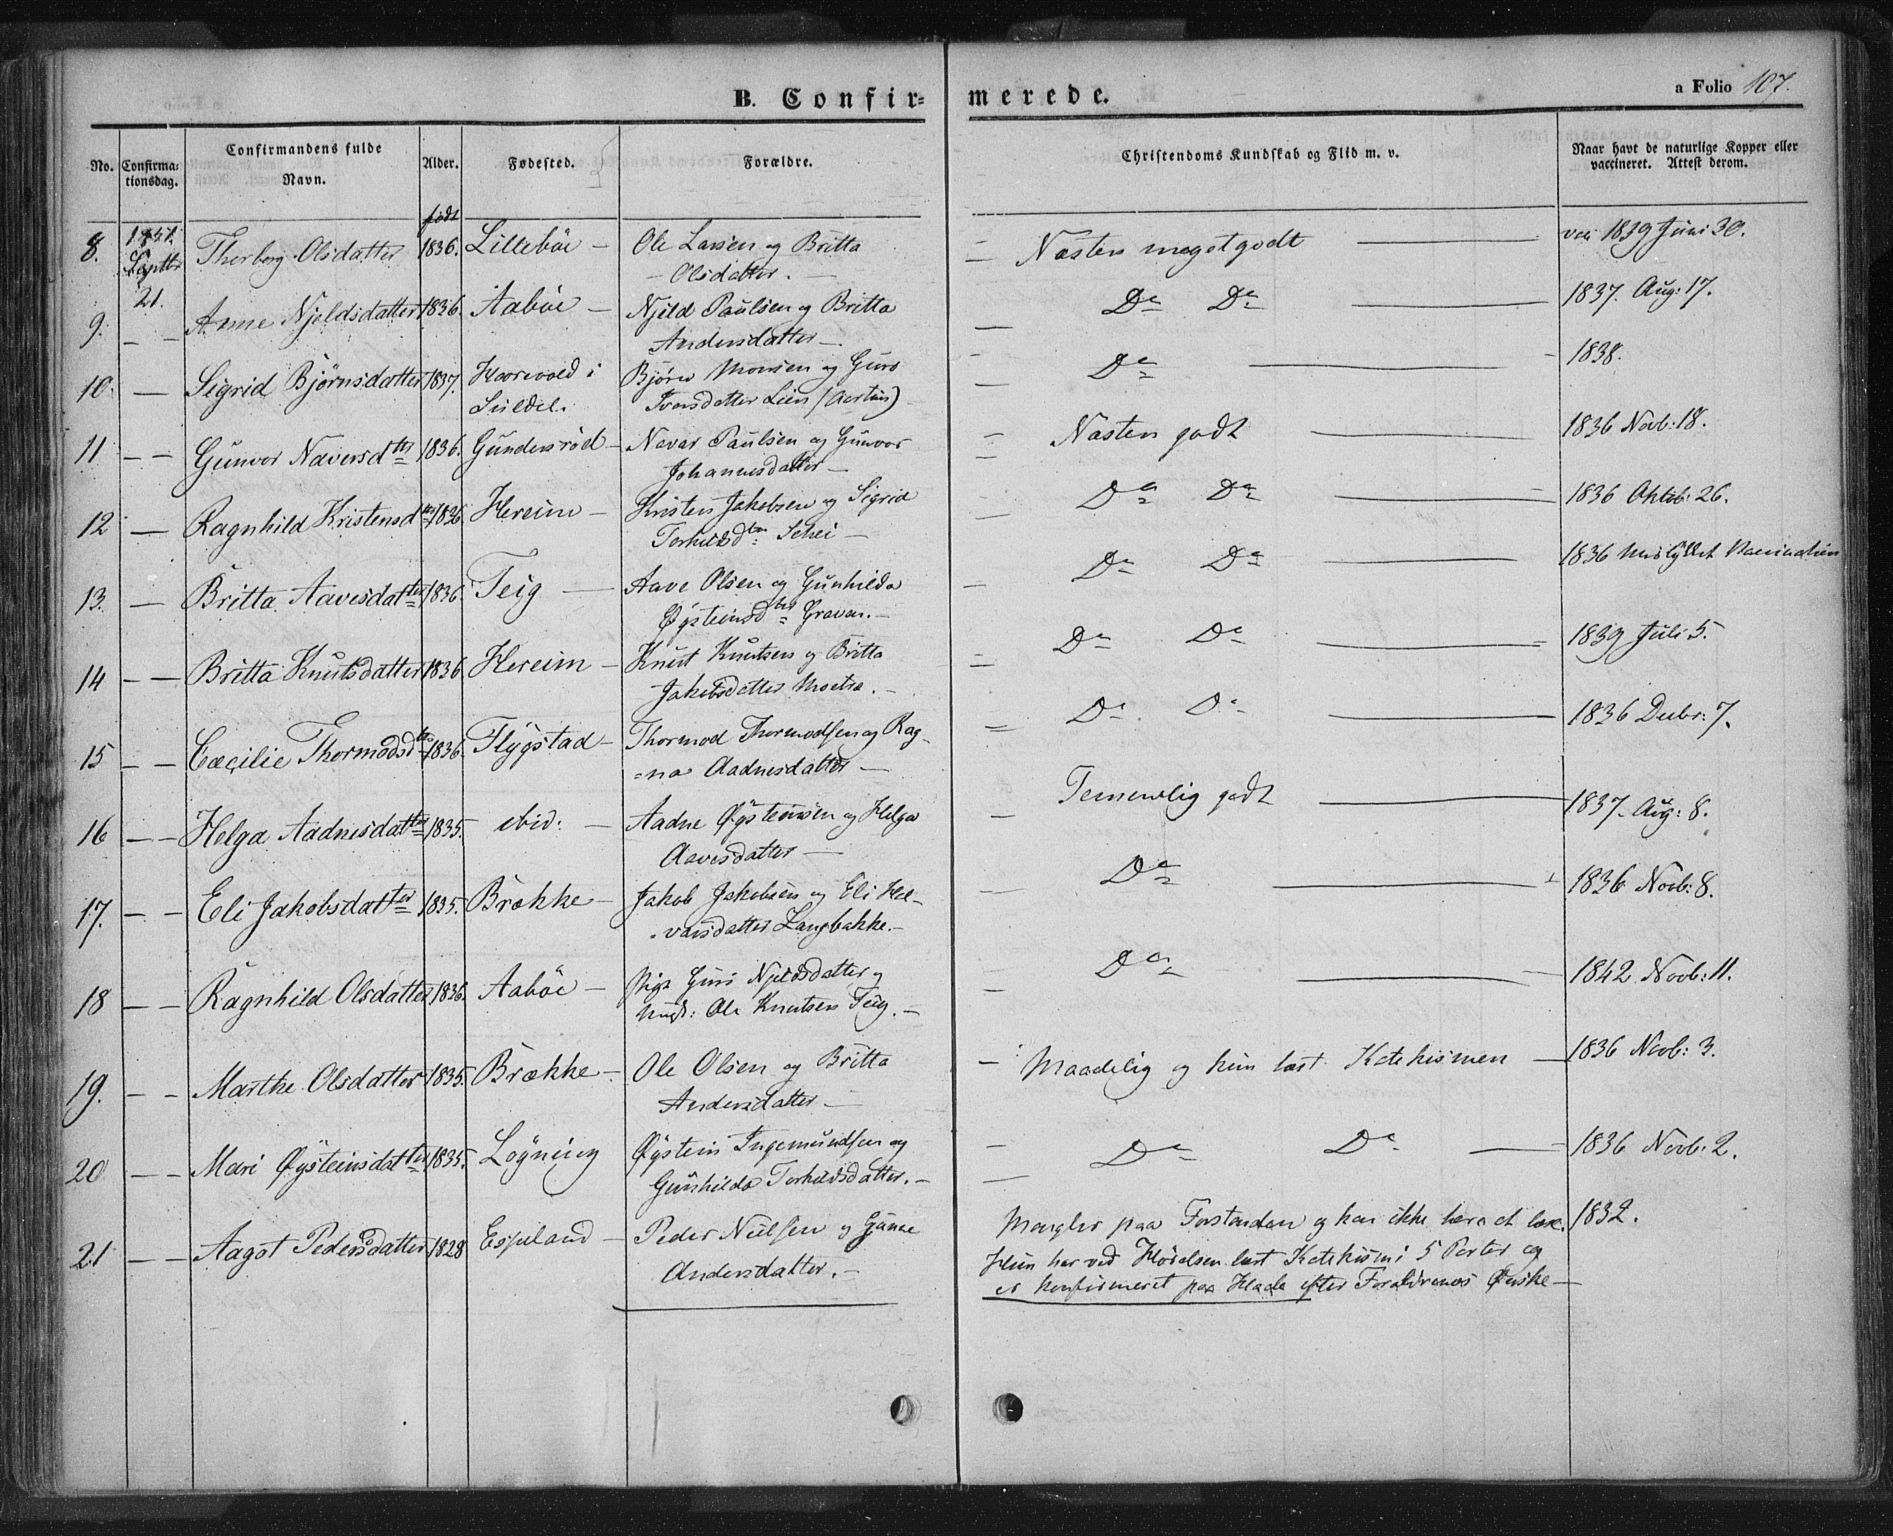 B. Confir=
merede.
a Folio 107.
No.
Confirma-
tionsdag.
Confirmandens fulde
Navn.
Alder.
Fødested.
Forældre.
Christendoms Kundskab og Flid m. v.
Naar havt de naturlige Kopper eller
vaccineret. Attest derom.
født
8. 1851 Thorborg Olsdatter 1836. Lillebøe — Ole Larsen og Britta — Næsten meget godt — 1839 Juni 30.
Septbr — Olsdatter. —
21.
9. — — Anne Njeldsdatter 1836. Aabøe — Njeld Paulsen og Britta — Do Do — 1837. Aug: 17.
Andersdatter —
10. — Sigrid Bjørnsdatter 1837. i Bjørn Monsen og Guro — Do — 1838.
Suldal. Iversdatter Lien
11 — — Gunvor Naversdtr 1836. Gundersrød — Navar Paulsen og Gunvor — Næsten godt — 1836 Novb: 18.
Johannesdatter —
12 — Ragnhild Kristensdtr 1836 Hereim — Kristen Jakobsen og Sigrid — Do Do — 1836 Oktob: 26.
Torkildsdtr: Schei —
13. — Britta Aavesdatter 1836. Teig — Aave Olsen og Gunhilda — Do Do — 1836 mislykket Vaccination
Øysteinsdtr Gravan. —
14 — — Britta Knutsdatter 1836 Hereim — Knut Knutsen og Britta — Do Do — 1839 Juli 5.
Jakobsdatter Moetra. —
15 — — Cæcilie Thormodsdtr 1836. Flygstad — Thormod Thormodsen og Rag- — Do Do — 1836 Decbr: 7.
=na Aadnesdatter —
16 — — Helga Aadnesdatter 1835. ibid: — Aadne Øysteinsen og Helga — Temmelig godt — 1837. Aug: 8.
Aavesdatter —
17. — — Eli Jakobsdatter 1835. Brække — Jakob Jakobsen og Eli Hel- — Do — 1836 Novb: 8.
varsdatter Langbakke. —
18 — — Ragnhild Olsdatter 1836. Aabøe — Pige Guri Njeldsdatter og — Do — 1842 Novb: 11.
Ungk: Ole Knutsen Teig. —
19. — — Marthe Olsdatter 1835. Brække — Ole Olsen og Britta — Maadelig og kun læst Katekismen — 1836 Novb: 3.
Andersdatter —
20 — — Mari Øysteinsdatter 1835. Løgning Øystein Ingemundsen og — Do Do — 1836 Novb: 2.
Gunhilda Torkildsdatter. —
21 — — Aagot Pedersdatter 1828 Espeland — Peder Nielsen og Gunne Mangler paa Forstanden og kan ikke lære at læse. 1832.
Andersdatter. — Hun har ved Hørelsen lært Katekism: 5 Parter og
er konfirmeret paa efter Forældrenes Ønske —